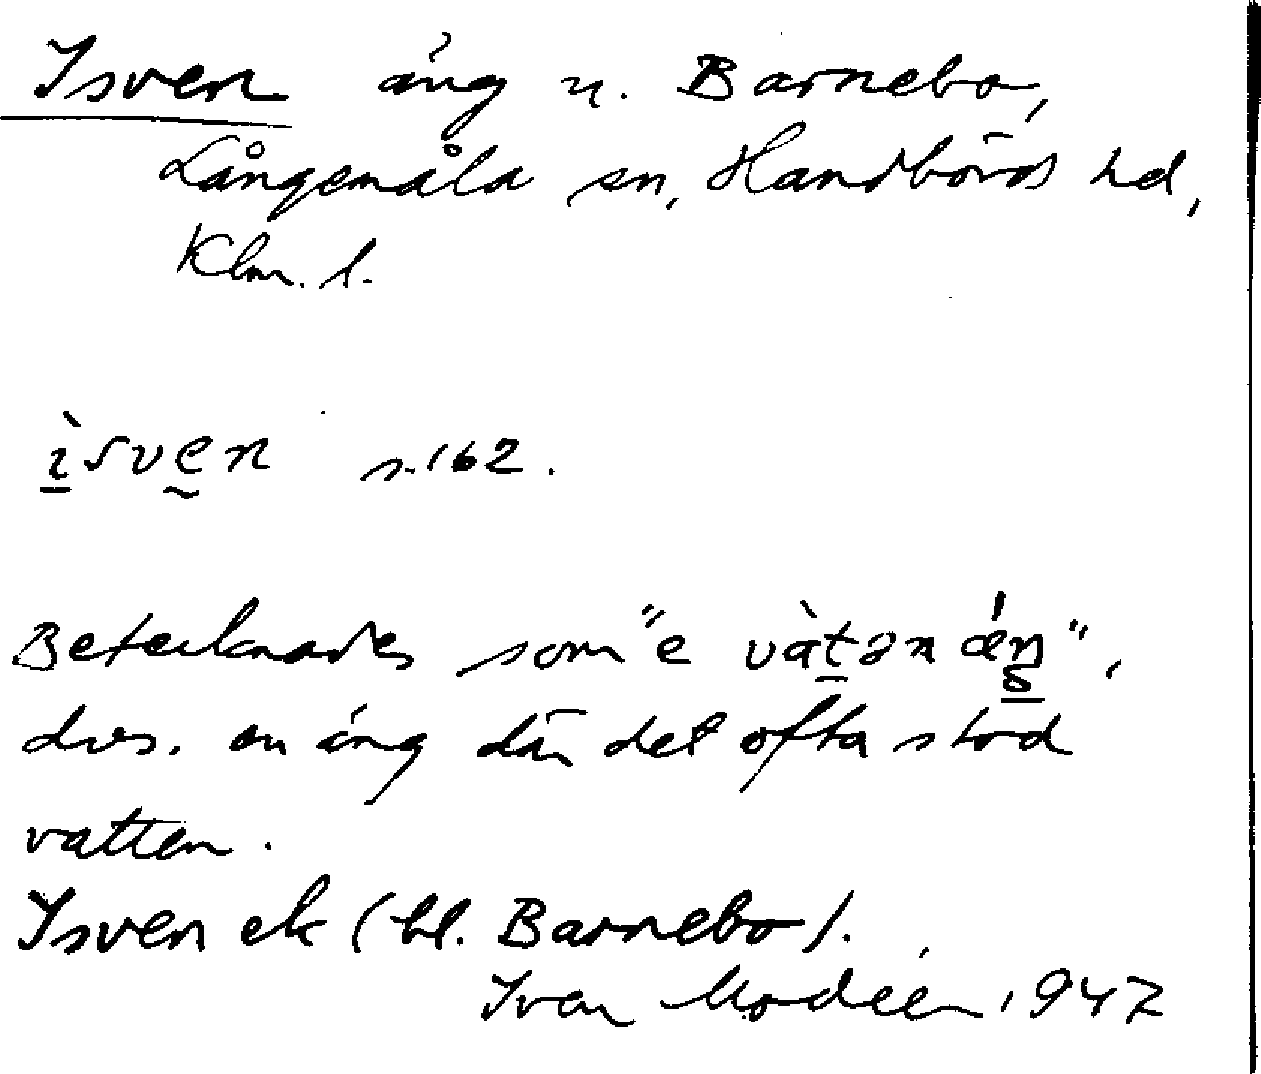 Isven äng u. Barnebo,
Långemåla sn, Handbörds hd,
Klm. l.
ìsven s. 162.
Betecknades som "e vàtən ǽŋ",
dvs. en äng där det ofta stod
vatten.
Isven ek (bl. Barnebo).
Ivar Modéer 1947